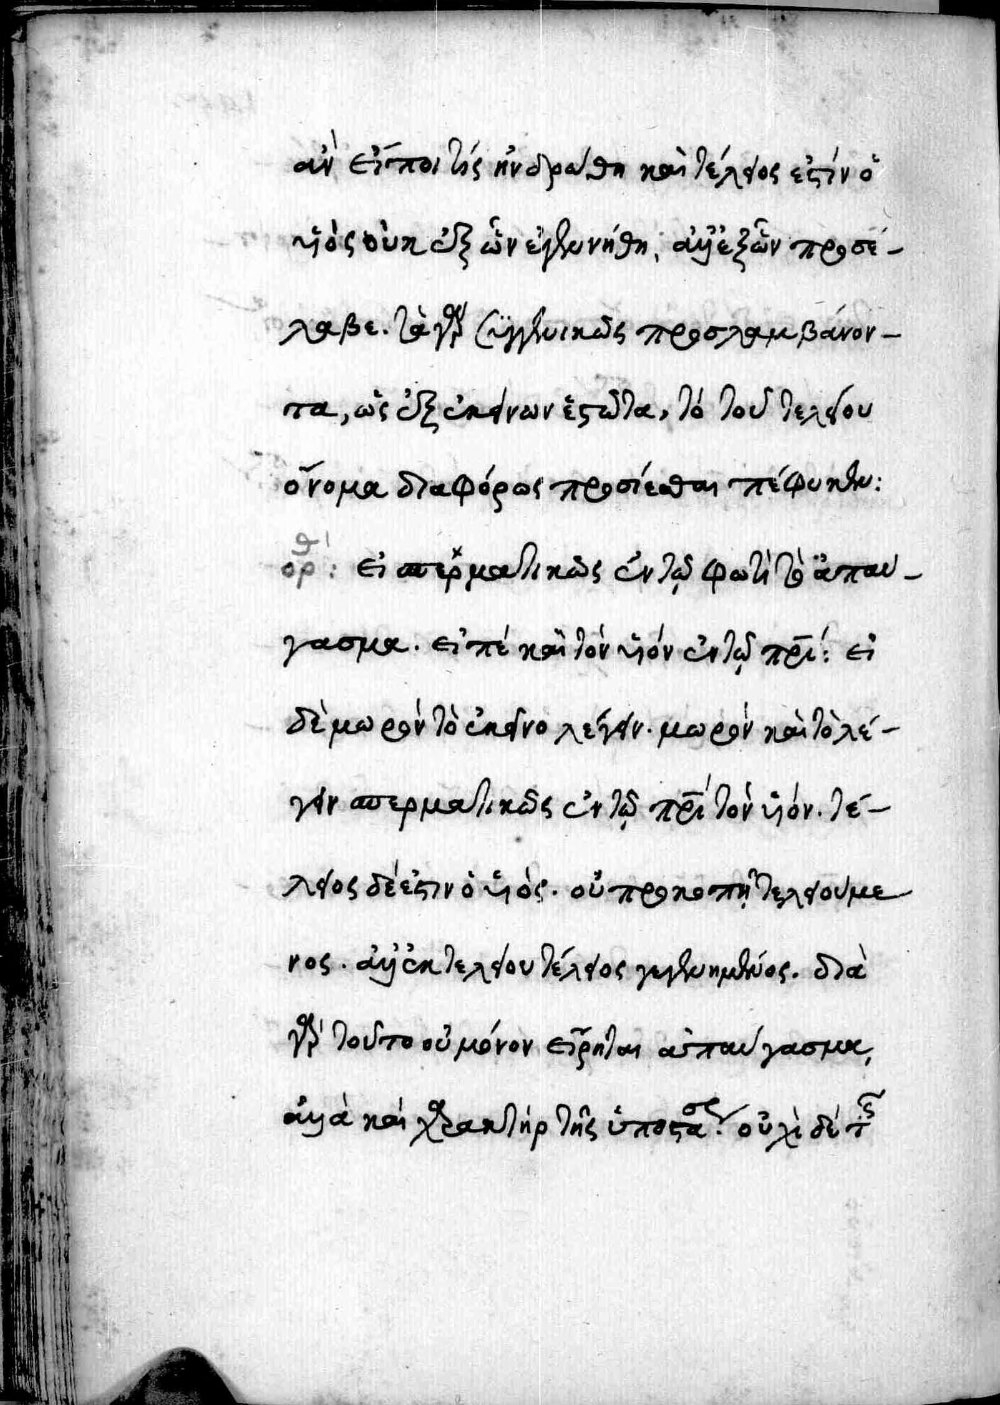 ἂν εἴποι τίς ἠνδρώθη καὶ τέλειος ἐστὶν ὁ
υἱὸς οὐκ ἐξ ὧν ἐγεννήθη, ἀλλ' ἐξ ὧν προσέ-
λαβε. τὰ γὰρ συγγενικῶς προσλαμβάνον-
τα, ὡς ἐξ ἐκείνων ἑστῶτα, τὸ τοῦ τελείου
ὄνομα διαφόρως προσίεσθαι πέφυκεν:
θ'
ορ: εἰ σπερματικῶς ἐν τῷ φωτὶ τὸ ἀπαύ-
γασμα. εἰπὲ καὶ τὸν υἱὸν ἐν τῷ πρί: εἰ
δὲ μωρὸν τὸ ἐκεῖνο λέγειν. μωρὸν καὶ τὸ λέ-
γειν σπερματικῶς ἐν τῷ πρὶ τὸν υἱόν. τέ-
λειος δέ ἐστιν ὁ υἱὸς. οὐ προκοπῇ τελειούμε
νος. ἀλλ' ἐκ τελείου τέλειος γεγεννημένος. διὰ
γὰρ τοῦτο οὐ μόνον εἴρηται ἀπαύγασμα,
ἀλλὰ καὶ χαρακτὴρ τῆς ὑποστάσεως. οὐχὶ δὲ τῆς